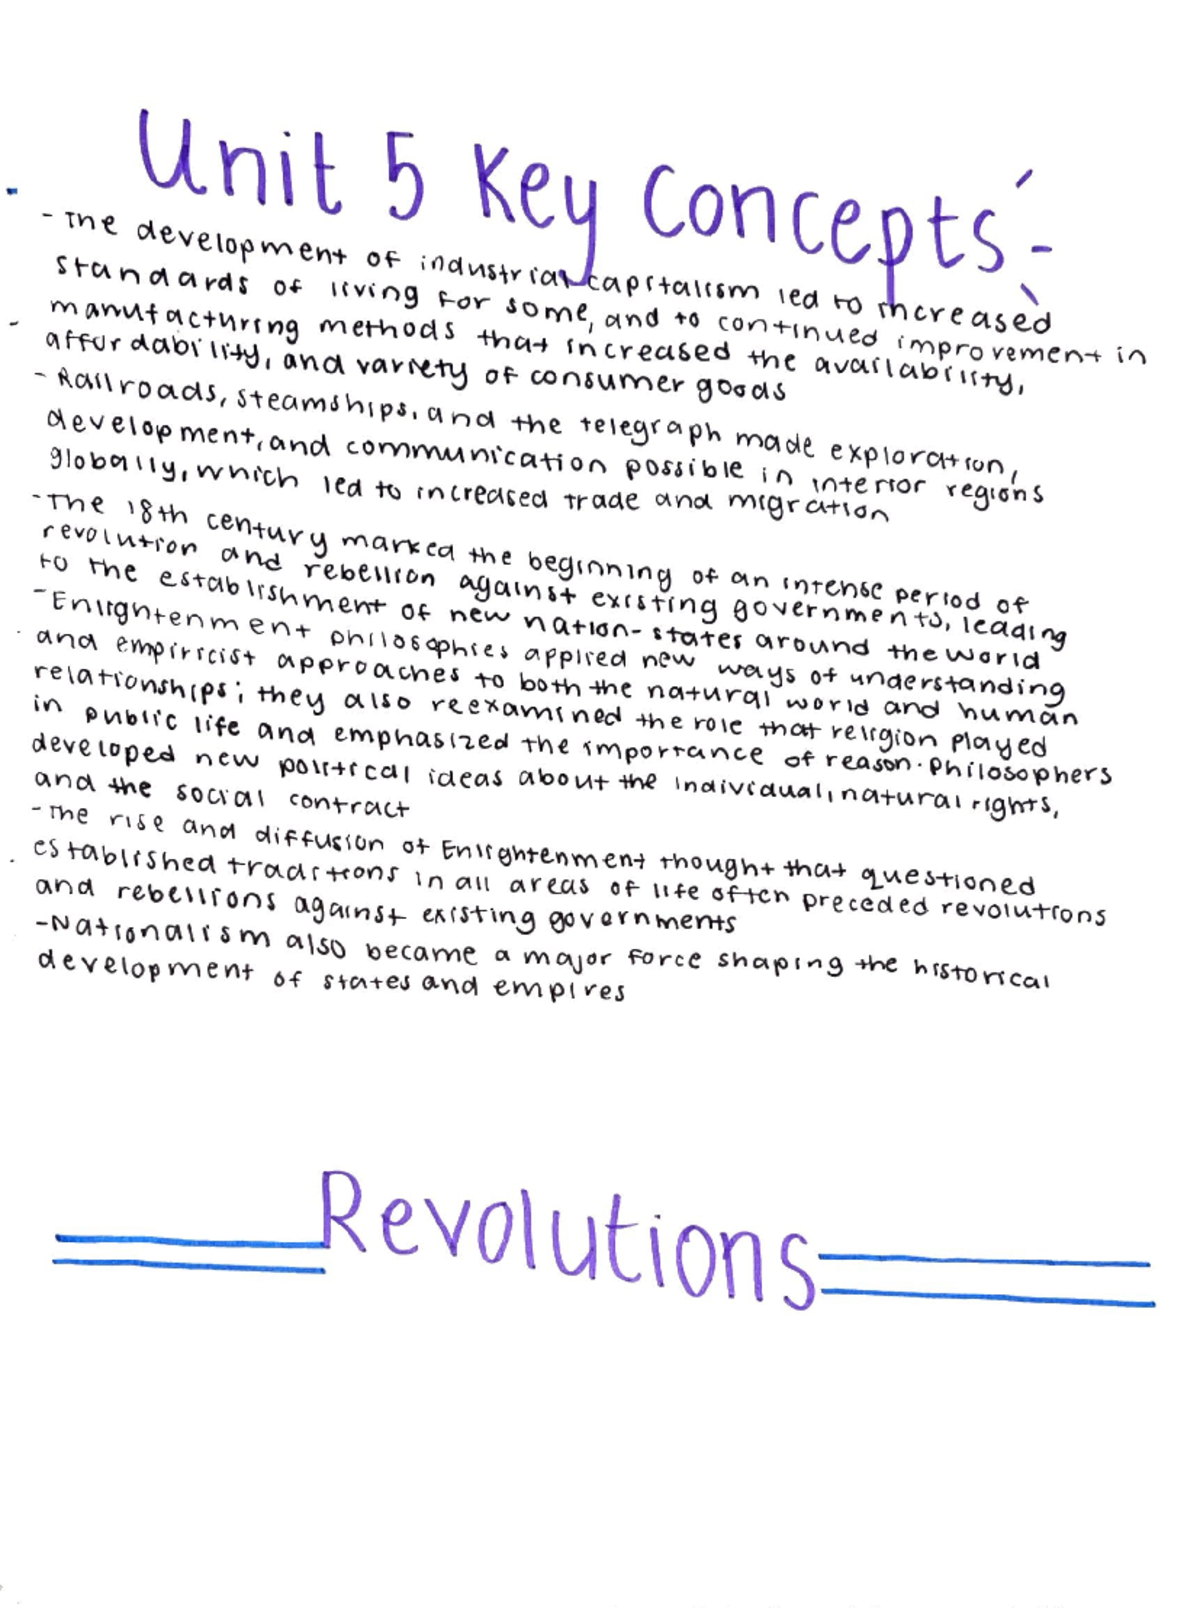 Unit 5 Key Concepts
- The development of industrial capitalism led to increased
standards of living for some, and to continued improvement in
manufacturing methods that increased the availability,
affordability, and variety of consumer goods
- Railroads, steamships, and the telegraph made exploration,
development, and communication possible in interior regions
globally, which led to increased trade and migration
- The 18th century marked the beginning of an intense period of
revolution and rebellion against existing governments, leading
to the establishment of new nation-states around the world
- Enlightenment philosophies applied new ways of understanding
and empiricist approaches to both the natural world and human
relationships; they also reexamined the role that religion played
in public life and emphasized the importance of reason. Philosophers
developed new political ideas about the individual, natural rights,
and the social contract
- The rise and diffusion of Enlightenment thought that questioned
established traditions in all areas of life often preceded revolutions
and rebellions against existing governments
- Nationalism also became a major force shaping the historical
development of states and empires
Revolutions